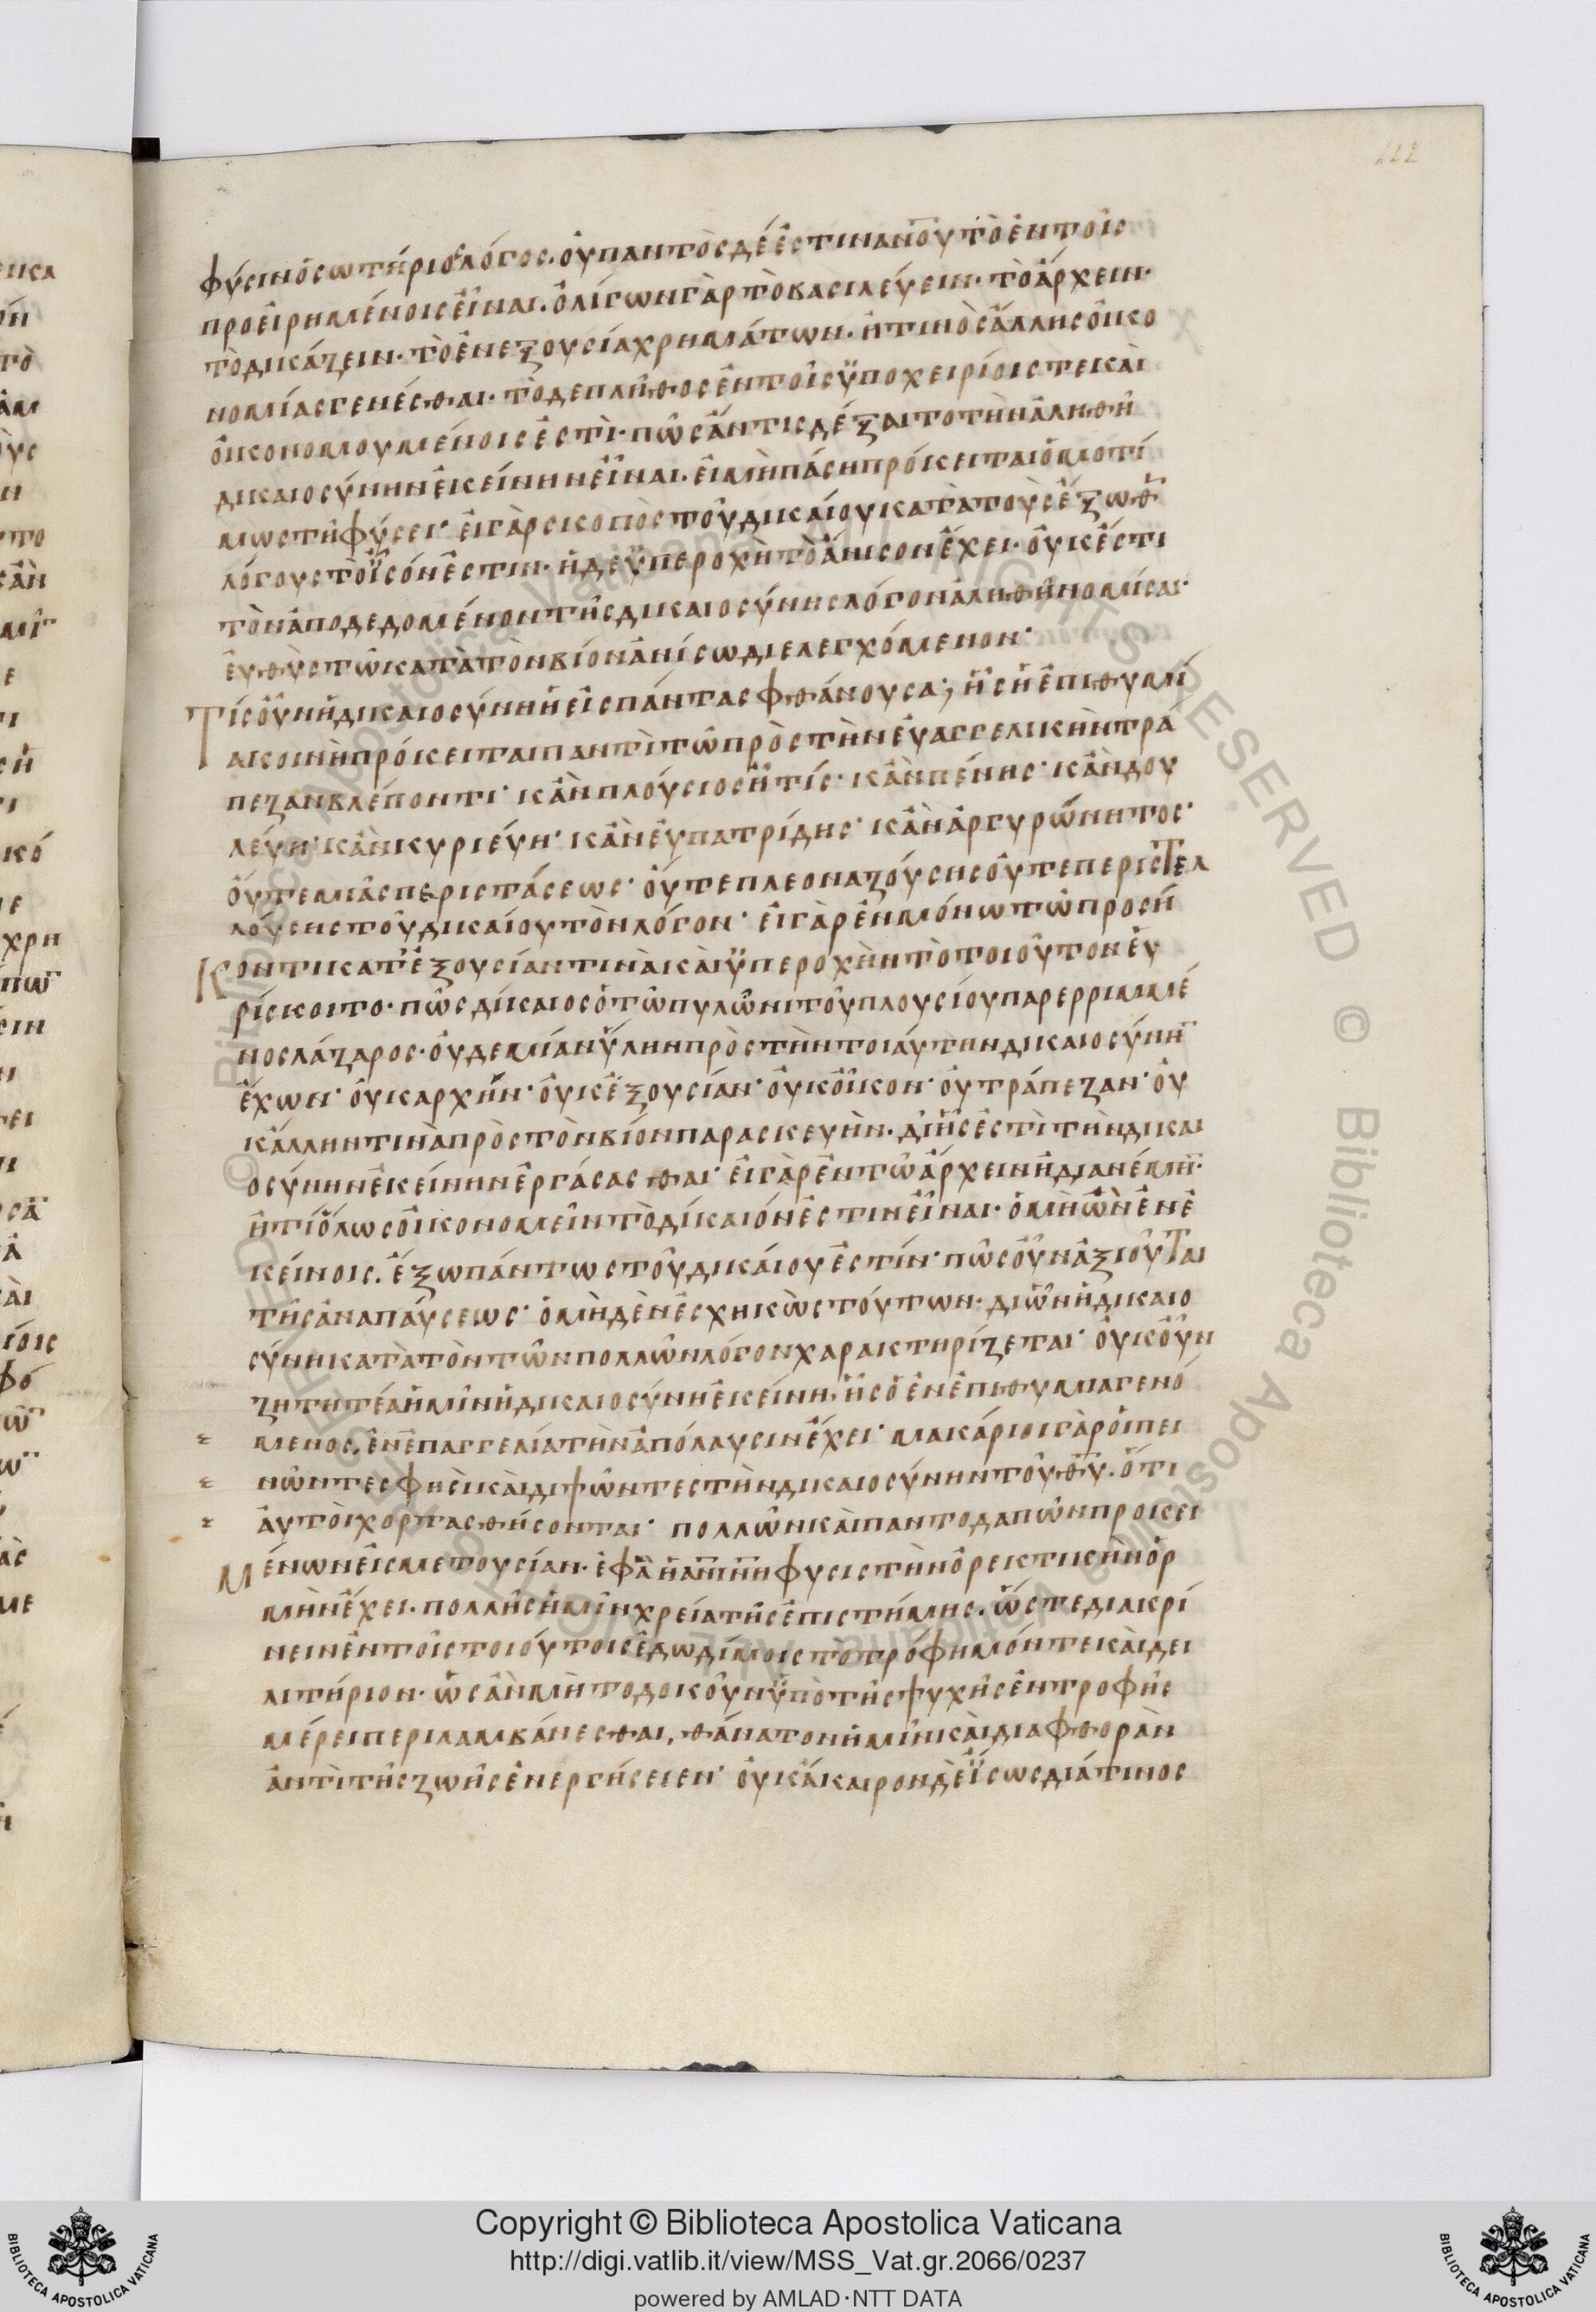 112
φύσιν ὁ σωτήριος λόγος. οὐ παντὸς δέ ἐστιν ἀνου τὸ ἐν τοῖς
προειρημένοις εἶναι. ὀλίγων γὰρ τὸ βασιλεύειν· τὸ ἄρχειν·
τὸ δικάζειν· τὸ ἐν ἐξουσία χρημάτων· ἤ τινὸς ἄλλης οἰκο
νομίας γενέσθαι· τὸ δε πλῆθος ἐν τοῖς ϋποχειρίοις τε καὶ
οἰκονομουμένοις ἐστὶ· πῶς ἄν τις δέξαιτο τὴν ἀληθῆ
δικαιοσύνην ἐκείνην εἶναι. εἰ μὴ πάση πρόκειται ὁμοτί
μως τῆ φύσει· εἰ γὰρ σκοπὸς τοῦ δικαίου κατὰ τοὺς ἔξωθ
λόγους τὸ ϊσόν ἐστιν· ἡ δε ϋπεροχὴ τὸ ἄνισον ἔχει· οὐκ ἔστι
τὸν ἀποδεδομένον τῆς δικαιοσύνης λόγον ἀληθῆ νομίσαι·
εὐθὺς τῶ κατὰ τὸν βίον ἀνίσω διελεγχόμενον·
Τίς οὖν ἡ δικαιοσύνη ἡ εἰς πάντας φθάνουσα; ἧς ἡ ἐπιθυμί
α κοινὴ πρόκειται παντὶ τῶ πρὸς τὴν εὐαγγελικὴν τρά
πεζαν βλέποντι· κἂν πλούσιος ἦ τίς· κἂν πένης· κἂν δου
λεύη· κἂν κυριεύη· κἂν εὐπατρίδης· κἂν ἀργυρώνητος·
οὔτε μιᾶς περιστάσεως· οὔτε πλεοναζούσης οὔτε περιστελ
λούσης τοῦ δικαίου τὸν λόγον· εἰ γὰρ ἐν μόνω τῶ προσή
Κοντι κατ' ἐξουσίαν τινὰ καὶ ϋπεροχὴν τὸ τοιοῦτον εὑ
ρίσκοιτο· πῶς δίκαιος ὁ τῶ πυλῶνι τοῦ πλουσίου παρερριμμέ
νος λάζαρος· οὐδεμίαν ὕλην πρὸς τὴν τοιαύτην δικαιοσύνη
ἔχων· οὐκ αρχὴν· οὐκ ἐξουσίαν· οὐκ οἶκον· οὐ τράπεζαν· οὐ
κ ἄλλην τινὰ πρὸς τὸν βίον παρασκευὴν. δι ἧς ἐστὶ τὴν δικαι
οσύνην ἐκείνην ἐργάσασθαι· εἰ γὰρ ἐν τῶ ἄρχειν ἢ διανέμη·
ἤ τί ὅλως οἰκονομεῖν τὸ δίκαιόν ἐστιν εἶναι· ὁ μὴ ὢν ἐν ἐ
κείνοις. ἔξω πάντως τοῦ δικαίου ἐστίν· πῶς οὖν ἀξιοῦται
τῆς ἀναπαύσεως· ὁ μὴ δὲν ἐσχηκὼς τούτων· δι ὧν ἡ δικαιο
σύνη κατὰ τὸν τῶν πολλῶν λόγον χαρακτηρίζεται· οὐκοῦν
ζητητέα ἡμῖν ἡ δικαιοσύνη ἐκείνη, ἧς ὁ ἐν ἐπιθυμια γενό
μενος, ἐν ἐπαγγελία τὴν ἀπόλαυσιν ἔχει· μακάριοι γὰρ οἱ πει
νῶντες φησὶ καὶ διψῶντες τὴν δικαιοσύνην τοῦ θυ. ὅτι
αὐτοὶ χορτασθήσονται· πολλῶν καὶ παντοδαπῶν προκει
Μένων εἰς μετουσίαν· ἐφ ἃ ἡ ἀνη φυσις τὴν ὀρεκτικὴν ὁρ
μὴν ἔχει. πολλῆς ἡμῖν χρεία τῆς ἐπιστήμης. ὥστε διακρί
νειν ἐν τοῖς τοιούτοις ἐδωδίμοις τὸ τρόφημόν τε καὶ δει
λιτήριον· ὡς ἂν μὴ τοδοκοῦν ϋπὸ τῆς ψυχῆς ἐν τροφῆς
μέρει περιλαμβάνεσθαι, θάνατον ἡμῖν καὶ διαφθορὰν
ἀντὶ τῆς ζωῆς ἐνεργήσειεν· οὐκ ἄκαιρον δὲ ϊσως διά τινος
Copyright © Biblioteca Apostolica Vaticana
http://digi.vatlib.it/view/MSS_Vat.gr.2066/0237
powered by AMLAD·NTT DATA